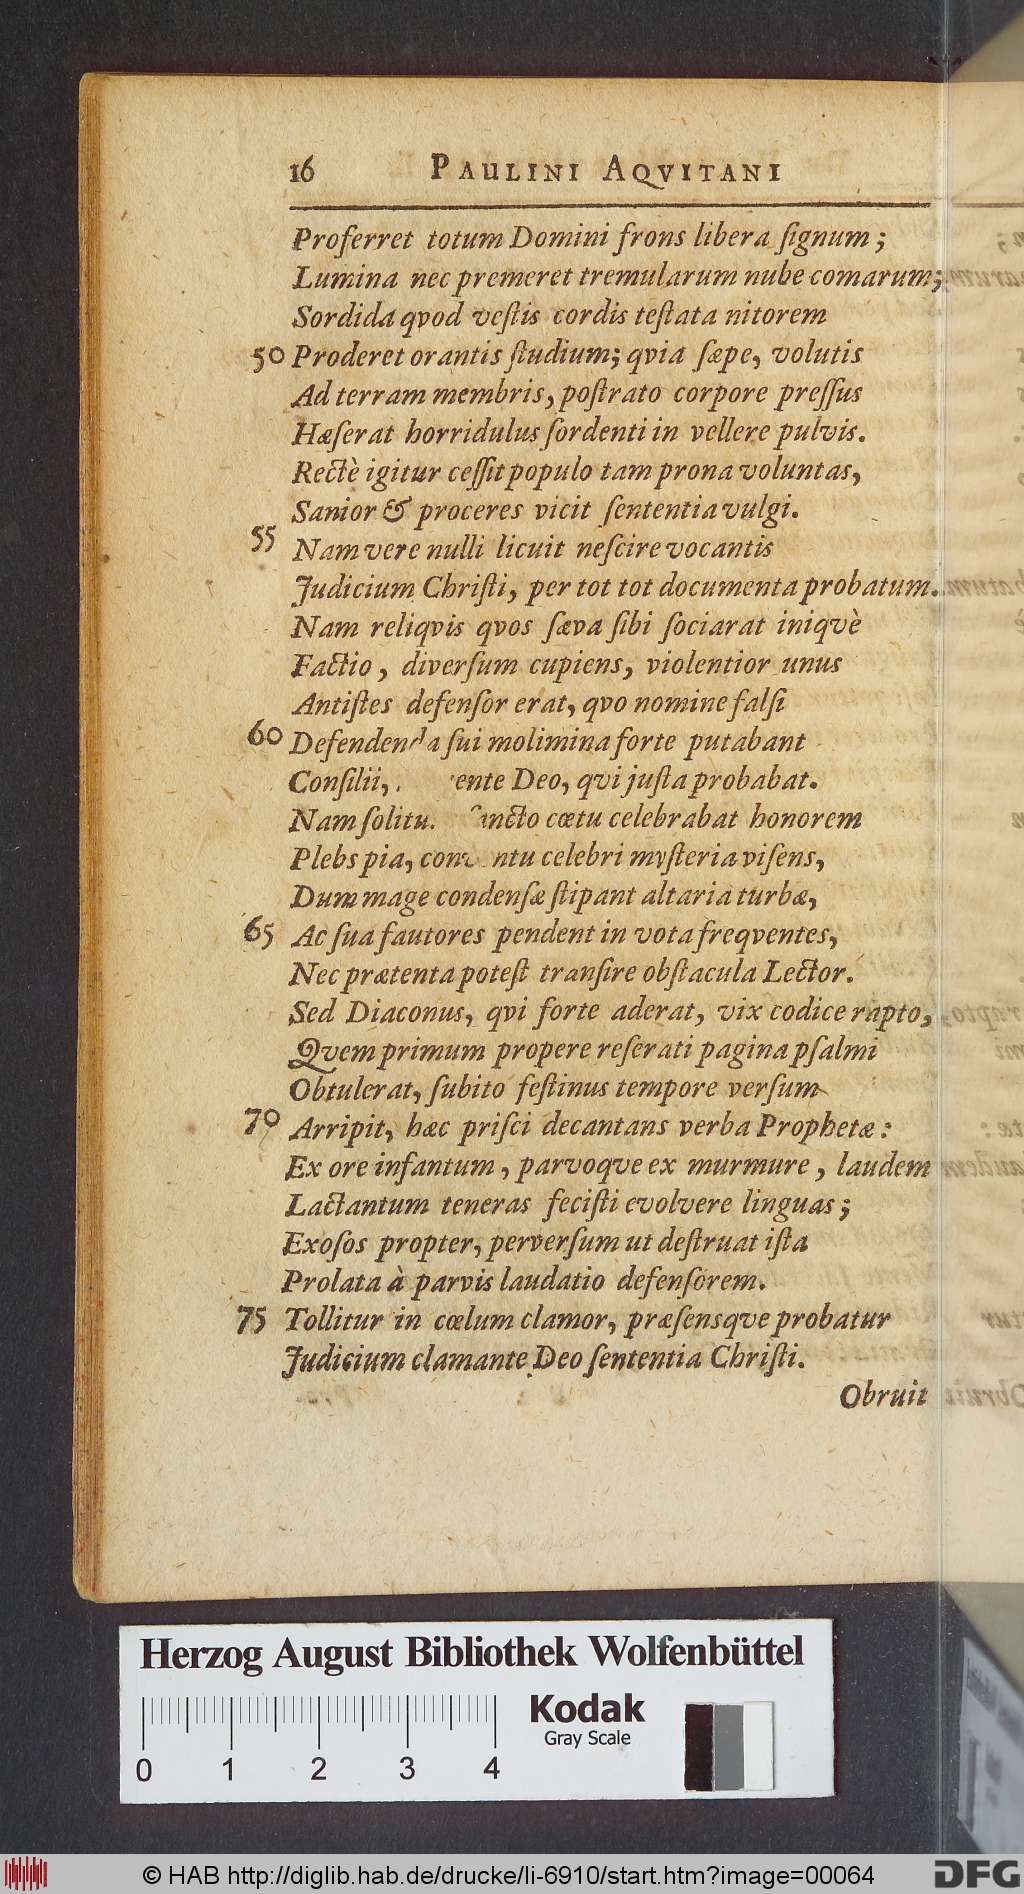 16 PAULINI AQVITANI
Proferret totum Domini frons libera ſignum;
Lumina nec premeret tremularum nube comarum;
Sordida qvod veſtis cordis teſtata nitorem
50 Proderet orantis ſtudium; qvia ſæpe, volutis
Ad terram membris, poſtrato corpore preſſus
Hæſerat horridulus ſordenti in vellere pulvis.
Rectè igitur ceſſit populo tam prona voluntas,
Sanior & proceres vicit ſententia vulgi.
55 Nam vere nulli licuit neſcire vocantis
Judicium Chriſti, per tot tot documenta probatum.
Nam reliqvis qvos ſæva ſibi ſociarat iniqvè
Factio, diverſum cupiens, violentior unus
Antiſtes defenſor erat, qvo nomine falſi
60 Defendenda ſui molimina forte putabant
Conſilii, ente Deo, qvi juſta probabat.
Nam ſolitu. ncto cœtu celebrabat honorem
Plebs pia, con ntu celebri myſteria viſens,
Dum mage condenſæ ſtipant altaria turbæ,
65 Ac ſua fautores pendent in vota freqventes,
Nec prætenta poteſt tranſire obſtacula Lector.
Sed Diaconus, qvi forte aderat, vix codice rapto,
Qvem primum propere reſerati pagina pſalmi
Obtulerat, ſubito feſtinus tempore verſum
70 Arripit, hæc priſci decantans verba Prophetæ:
Ex ore infantum, parvoqve ex murmure, laudem
Lactantum teneras feciſti evolvere linguas;
Exoſos propter, perverſum ut deſtruat iſta
Prolata à parvis laudatio defenſorem.
75 Tollitur in cœlum clamor, præſensqve probatur
Judicium clamante Deo ſententia Chriſti.
Obruit
Herzog August Bibliothek Wolfenbüttel
Kodak
Gray Scale
0 1 2 3 4
© HAB http://diglib.hab.de/drucke/li-6910/start.htm?image=00064
DFG